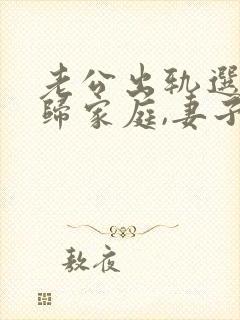 老公出轨選
歸家庭,妻子
敖夜